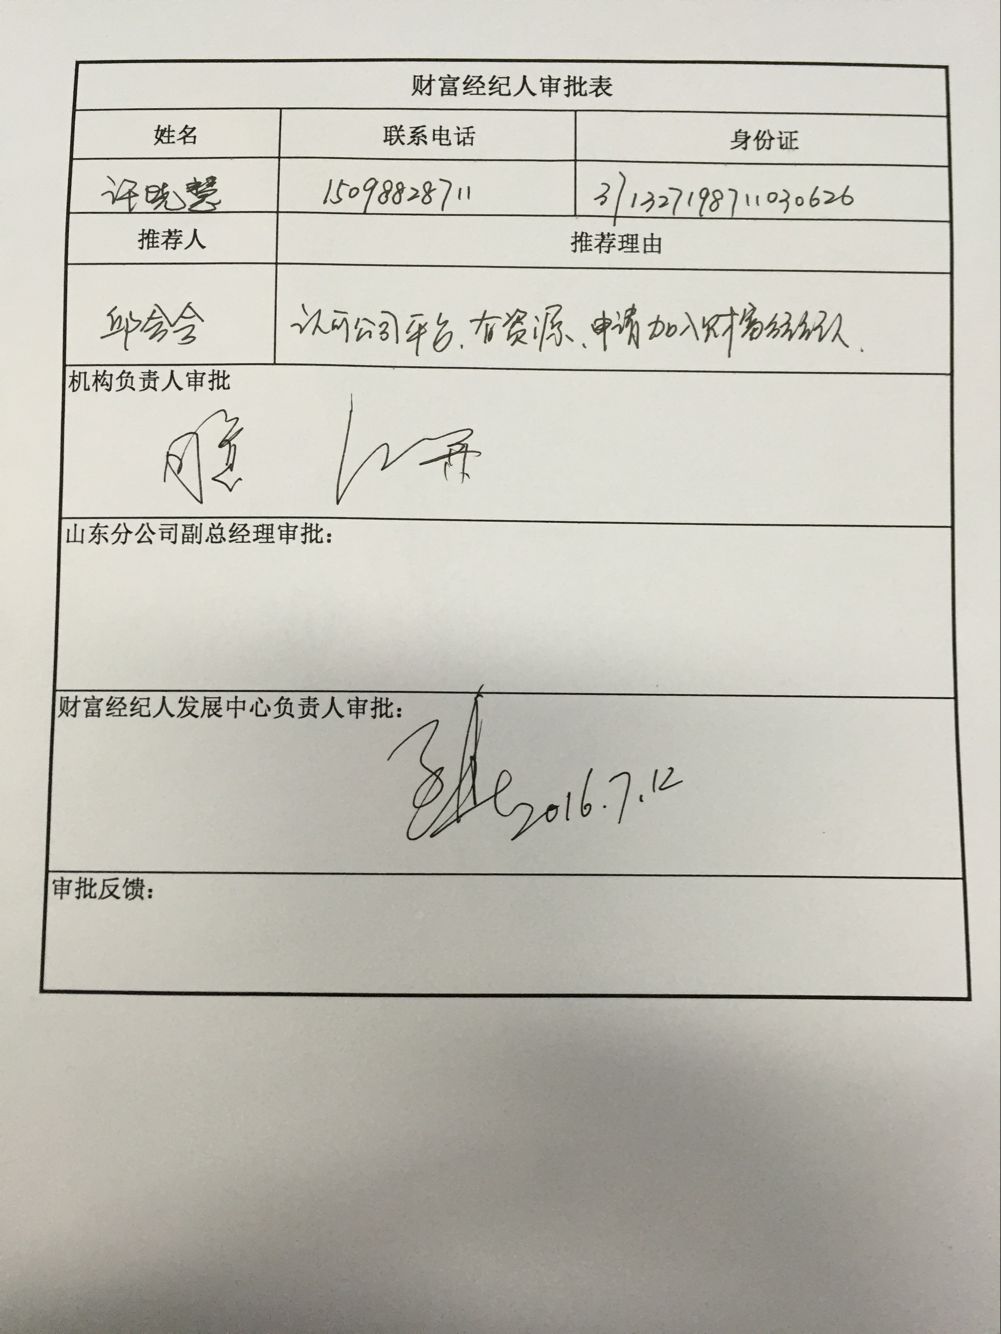 财富经纪人审批表
姓名 联系电话 身份证
许晓慧 15098828711 371327198711030626
推荐人 推荐理由
邱会会 认可公司平台、有资源、申请加入财富经纪人.
机构负责人审批
山东分公司副总经理审批：
财富经纪人发展中心负责人审批：
2016.7.12
审批反馈：